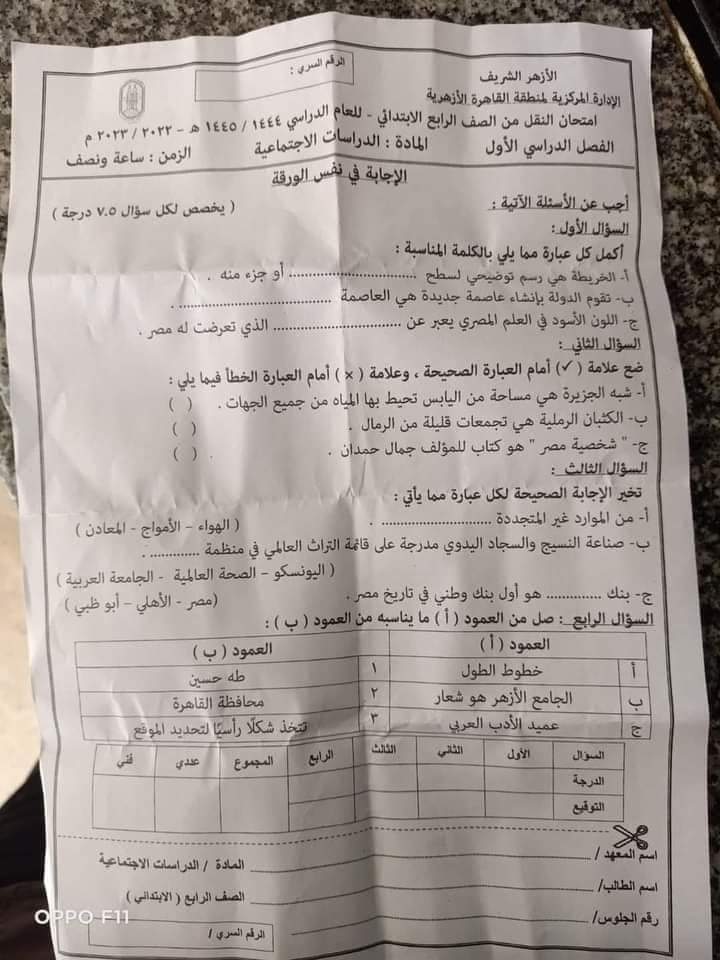 الرقم السري :
الأزهر الشريف
الإدارة المركزية لمنطقة القاهرة الأزهرية
امتحان النقل من الصف الرابع الابتدائي - للعام الدراسي ١٤٤٤ / ١٤٤٥ هـ - ٢٠٢٢ / ٢٠٢٣ م
الفصل الدراسي الأول المادة : الدراسات الاجتماعية الزمن : ساعة ونصف
الإجابة في نفس الورقة
أجب عن الأسئلة الآتية : ( يخصص لكل سؤال ٧.٥ درجة )
السؤال الأول:
أكمل كل عبارة مما يلي بالكلمة المناسبة :
أ- الخريطة هي رسم توضيحي لسطح .............................. أو جزء منه .
ب- تقوم الدولة بإنشاء عاصمة جديدة هي العاصمة .............................. .
ج- اللون الأسود في العلم المصري يعبر عن .............................. الذي تعرضت له مصر .
السؤال الثاني :
ضع علامة ( ✓ ) أمام العبارة الصحيحة ، وعلامة ( × ) أمام العبارة الخطأ فيما يلي :
أ- شبه الجزيرة هي مساحة من اليابس تحيط بها المياه من جميع الجهات . ( )
ب- الكثبان الرملية هي تجمعات قليلة من الرمال . ( )
ج- " شخصية مصر " هو كتاب للمؤلف جمال حمدان . ( )
السؤال الثالث :
تخير الإجابة الصحيحة لكل عبارة مما يأتي :
أ- من الموارد غير المتجددة ........................... . ( الهواء – الأمواج - المعادن )
ب- صناعة النسيج والسجاد اليدوي مدرجة على قائمة التراث العالمي في منظمة ............. .
( اليونسكو – الصحة العالمية - الجامعة العربية )
ج- بنك ............. هو أول بنك وطني في تاريخ مصر . (مصر - الأهلي – أبو ظبي )
السؤال الرابع : صل من العمود ( أ ) ما يناسبه من العمود ( ب ) :
العمود ( أ ) العمود ( ب )
أ خطوط الطول ١ طه حسين
ب الجامع الأزهر هو شعار ٢ محافظة القاهرة
ج عميد الأدب العربي ٣ تتخذ شكلًا رأسيًا لتحديد الموقع
السؤال الأول الثاني الثالث الرابع المجموع عددي فني
الدرجة
التوقيع
اسم المعهد / المادة / الدراسات الاجتماعية
اسم الطالب/ الصف الرابع ( الابتدائي )
رقم الجلوس/ الرقم السري /
OPPO F11